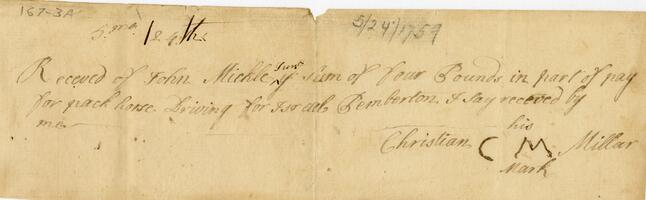 167-3A
5/24/1759
5 mo / 24th
Receved of John Mickle Junr ye sum of four Pounds in part of pay
for pack horse Driving for Israel Pemberton I say receved by
me
his
Christian C M Millar
Mark